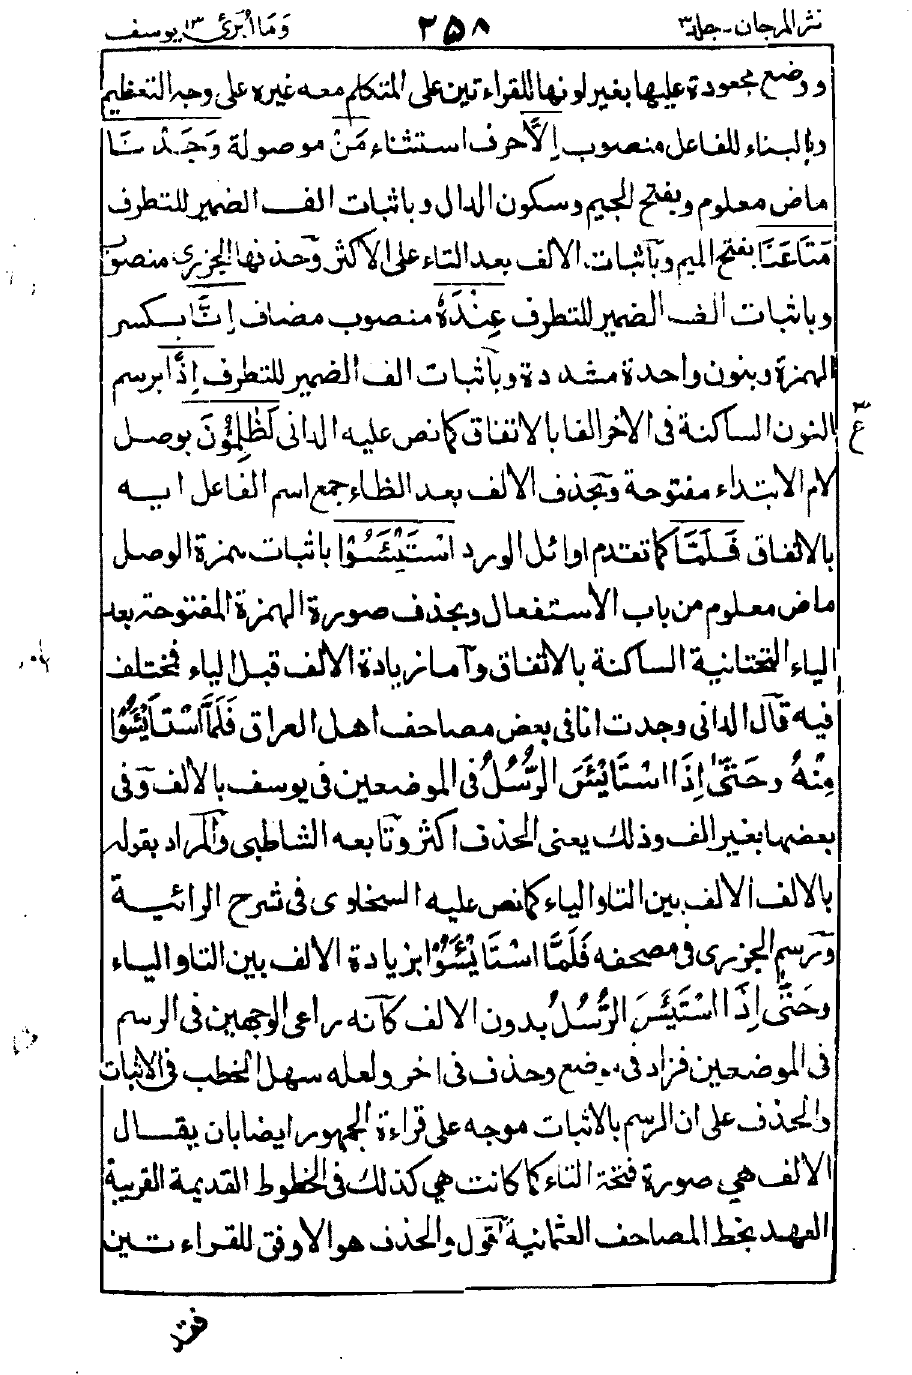 نثر المرجان - جلد ۳ ۲۵۸ وَمَا أُبَرِّئُ ۱۳ یوسف
ووضع مجعودة عليها بغير لونها للقراءتين على المتكلم معه غيره على وجه التعظيم
وبالبناء للفاعل منصوب إِلَّا حرف استثناء مَنْ موصولة وَجَدْنَا
ماض معلوم وبفتح الجيم وسكون الدال وباثبات الف الضمير للتطرف
مَتَاعَنَا بفتح الميم وباثبات الالف بعد التاء على الاكثر وحذفها الجزري منصوب
وباثبات الف الضمير للتطرف عِنْدَهُ منصوب مضاف إِنَّا بكسر
الهمزة وبنون واحدة مشددة وباثبات الف الضمير للتطرف إِذًا برسم
النون الساكنة في الاخر الفا بالاتفاق كما نص عليه الداني لَظٰلِمُوْنَ بوصل
لام الابتداء مفتوحة وبحذف الالف بعد الظاء جمع اسم الفاعل ايه
بالاتفاق فَلَمَّا كما تقدم اوائل الورد اسْتَيْئَسُوْا باثبات همزة الوصل
ماض معلوم من باب الاستفعال وبحذف صورة الهمزة المفتوحة بعد
الياء التحتانية الساكنة بالاتفاق وآما زيادة الالف قبل الياء فمختلف
فيه قآل الداني وجدت انا في بعض مصاحف اهل العراق فَلَمَّا اسْتَايْئَسُوْا
مِنْهُ وحَتّٰى إِذَا اسْتَايْئَسَ الرُّسُلُ في الموضعين في يوسف بالالف وفي
بعضها بغير الف وذلك يعني الحذف اكثر وتابعه الشاطبي والمراد بقوله
بالالف الالف بين التاو الياء كما نص عليه السخاوى في شرح الرائية
ورسم الجزرى في مصحفه فَلَمَّا اسْتَايْئَسُوْا بزيادة الالف بين التاو الياء
وحَتّٰى إِذَا اسْتَيْئَسَ الرُّسُلُ بدون الالف كآنه راعى الوجهين في الرسم
في الموضعين فزاد في موضع وحذف في اخر ولعله سهل الخطب في الاثبات
والحذف على ان الرسم بالاثبات موجه على قراءة الجمهور ايضا بان يقال
الالف هي صورة فتحة التاء كما كانت هي كذلك في الخطوط القديمة القريبة
العهد بخط المصاحف العثمانية اقول والحذف هو الاوفق للقراءتين
فقد